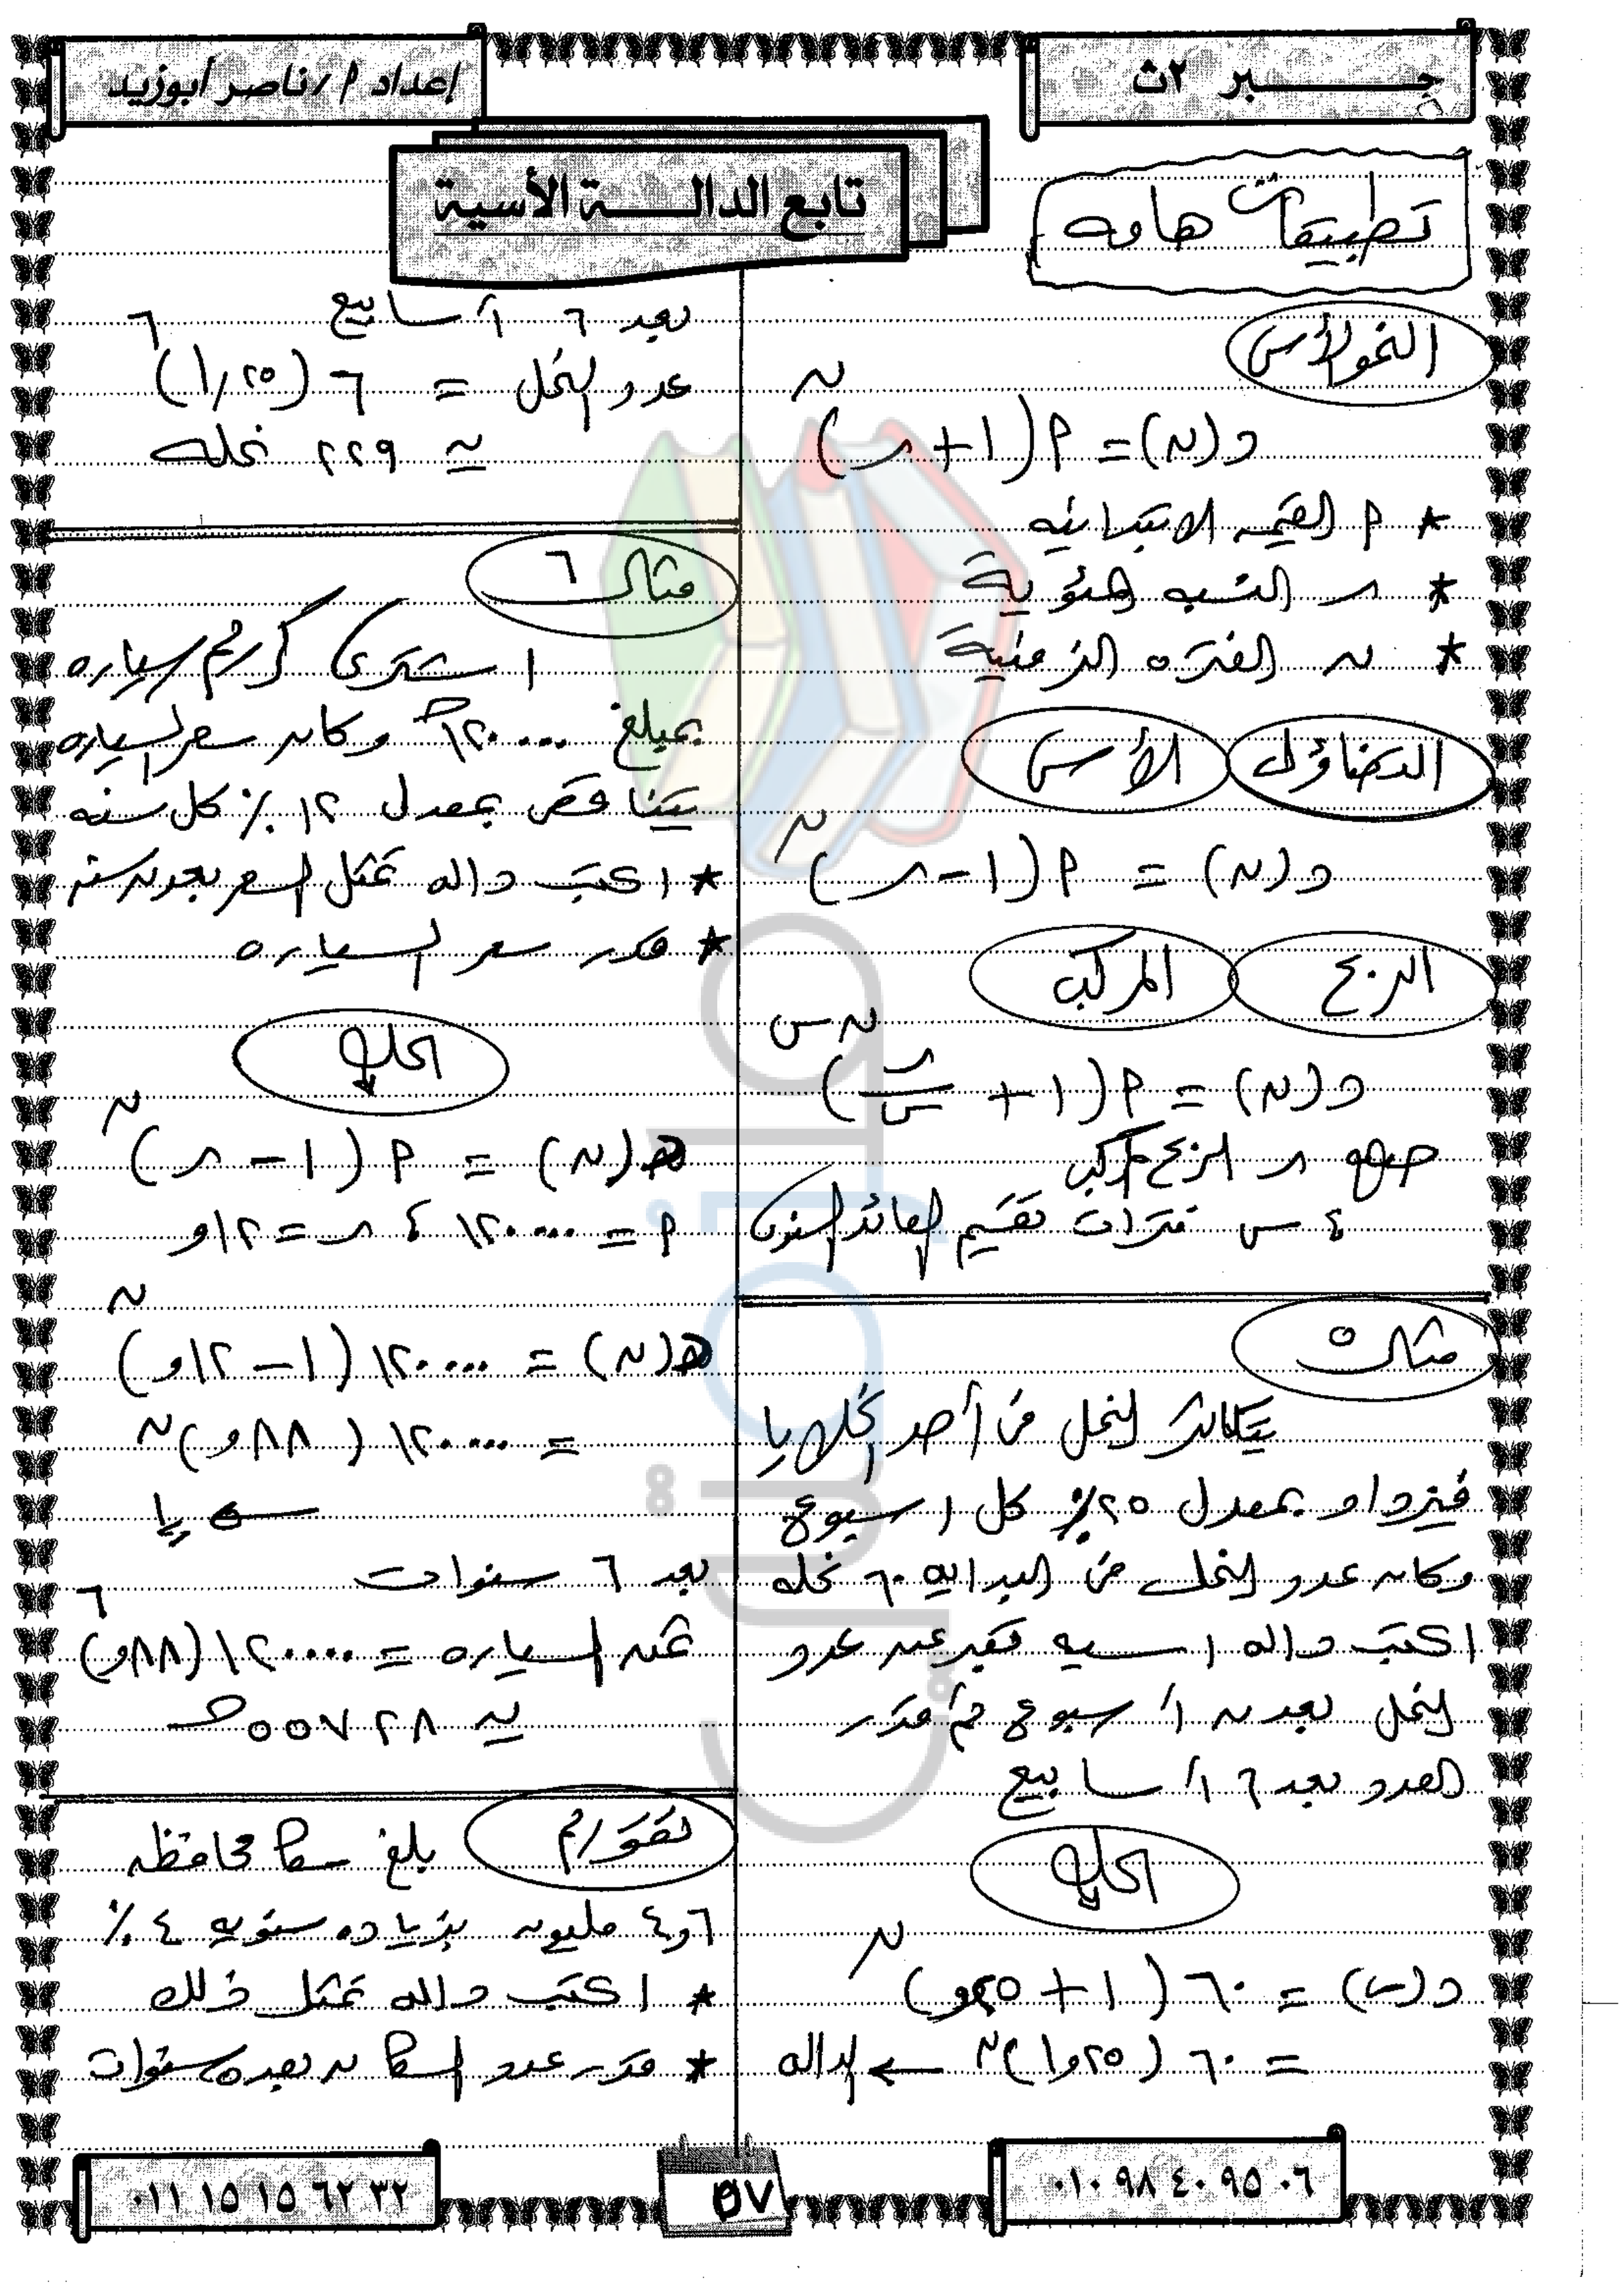 جبر ٢ث
إعداد م/ ناصر أبوزيد
تابع الدالة الأسية
تطبيقات هامه
النمو الأسى
د(ن) = م(١+ر)^ن
* م القيمه الابتدائيه
* ر النسبه المئوية
* ن الفتره الزمنية
التضاؤل الأسى
د(ن) = م(١-ر)^ن
الربح المركب
د(ن) = م(١ + ر/س)^ن س
حيث ر الربح المركب
، س فترات تقسيم العائد السنوى
مثال ٥
يتكاثر النحل فى أحد الخلايا
فيزداد بمعدل ٢٥٪ كل اسبوع
وكان عدد النحل فى البدايه ٦٠ نحله
اكتب داله اسيه تعبر عن عدد
النحل بعد ن أسبوع ثم قدر
العدد بعد ٦ أسابيع
الحل
د(س) = ٦٠ (١+ ٢٥و)^ن
= ٦٠ (١و٢٥)^ن ← الداله
بعد ٦ أسابيع
عدد النحل = ٦ (١,٢٥)^٦
≃ ٢٢٩ نحله
مثال ٦
اشترى كريم سياره
بمبلغ ١٢٠٠٠٠ حـ وكان سعر السياره
يتناقص بمعدل ١٢٪ كل سنه
* اكتب داله تمثل السعر بعد ن سنه
* قدر سعر السياره
الحل
د(ن) = م (١-ر)^ن
م = ١٢٠٠٠٠ ، ر = ١٢و
د(ن) = ١٢٠٠٠٠ (١-١٢و)^ن
= ١٢٠٠٠٠ (٨٨و)^ن
بعد ٦ سنوات
ثمن السياره = ١٢٠٠٠٠ (٨٨و)^٦
≃ ٥٥٧٢٨ حـ
تقويم بلغ سكان محافظه
٤و٦ مليون بزياده سنويه ٤٪
* اكتب داله تمثل ذلك
* قدر عدد السكان بعد ٥ سنوات
٠١٠ ٩٨ ٤٠ ٩٥ ٠٦
٥٧
٠١١ ١٥ ١٥ ٦٢ ٣٢